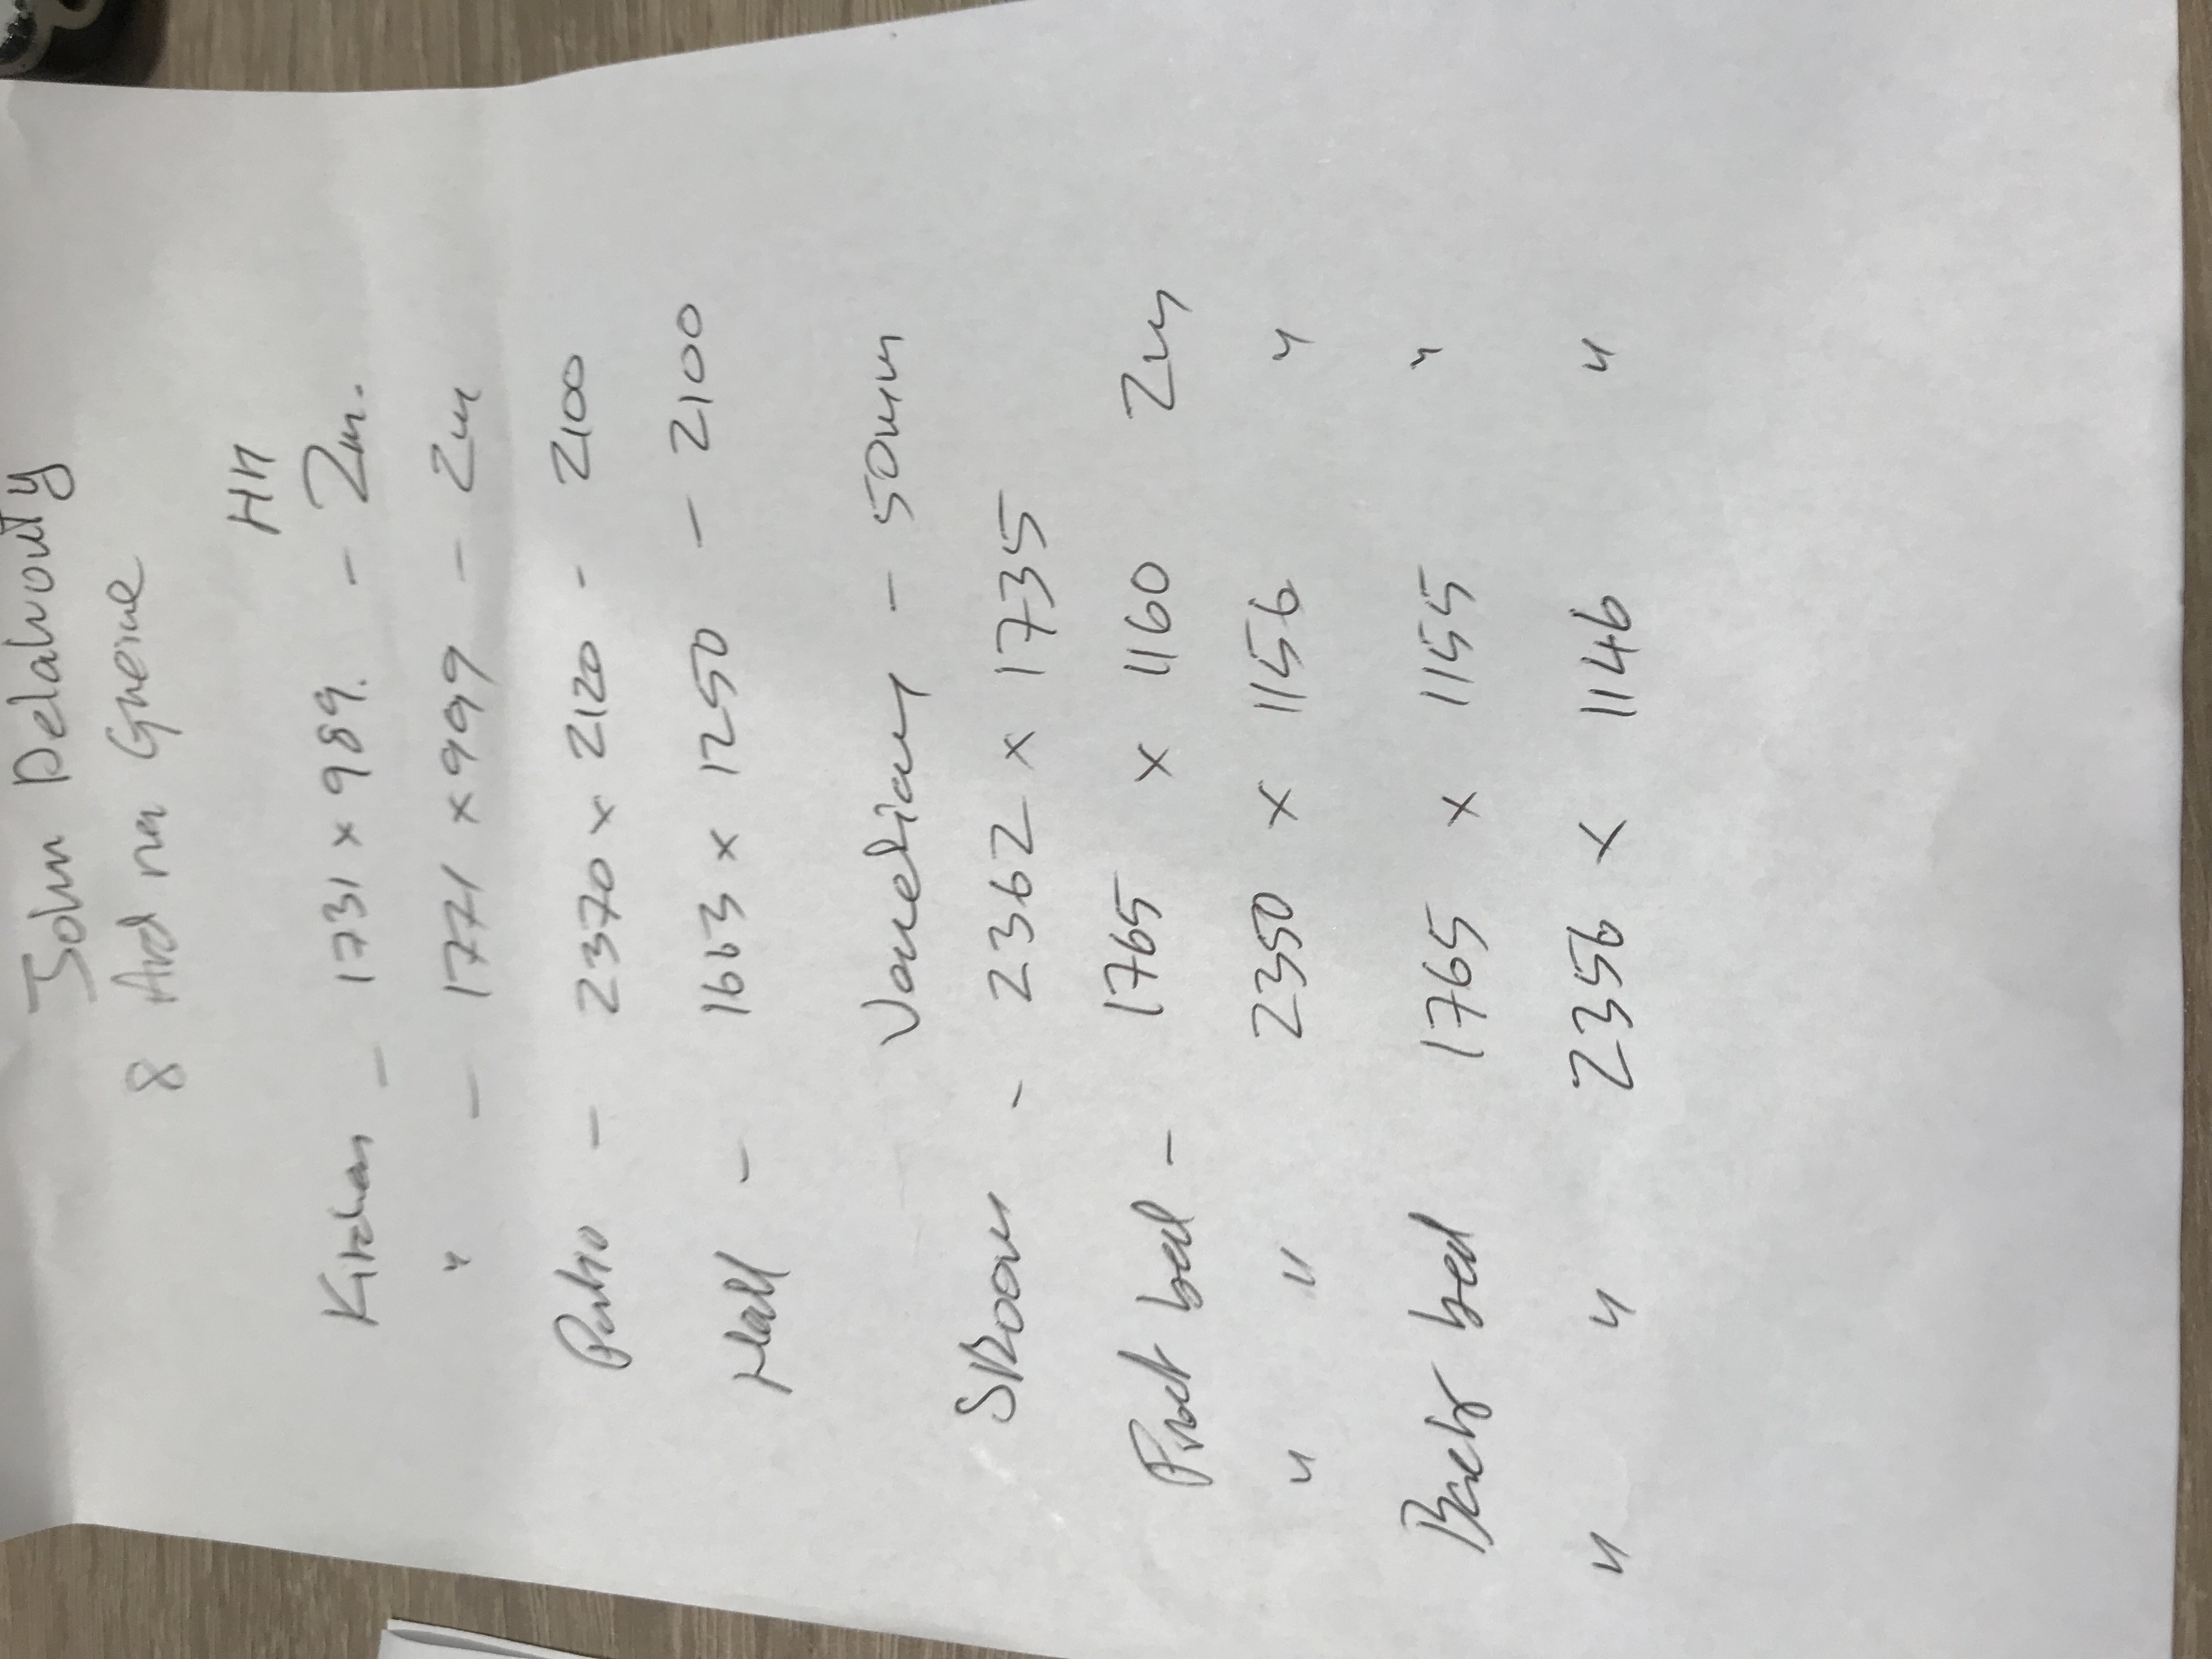 John Delahouty
8 Ard na Greine
HH
Kitchen - 1731 x 989. - 2m.
" - 1771 x 999 - 2m
Patio - 2370 x 2120 - 2100
Hall - 1663 x 1250 - 2100
Venetian - 50mm
SRoom - 2362 x 1735
Front bed - 1765 x 1160 2m
" " 2350 x 1156 "
Back bed 1765 x 1155 "
" " 2356 x 1146 "